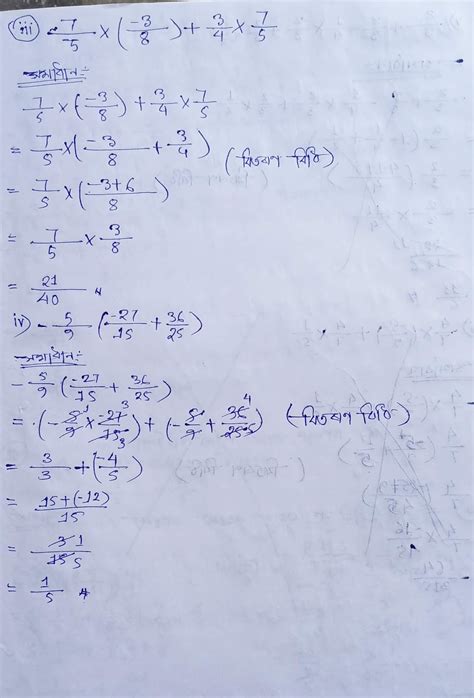 iii) 7/5 × (-3/8) + 3/4 × 7/5
সমাধান:-
7/5 × (-3/8) + 3/4 × 7/5
= 7/5 × (-3/8 + 3/4) (বিতৰণ বিধি)
= 7/5 × (-3+6/8)
= 7/5 × 3/8
= 21/40
iv) -5/9 (-27/15 + 36/25)
সমাধান:-
-5/9 (-27/15 + 36/25)
= (-5/9 × -27/15) + (-5/9 + 36/25) (বিতৰণ বিধি)
= 3/3 + (-4/5)
= 15+(-12)/15
= 3/15
= 1/5